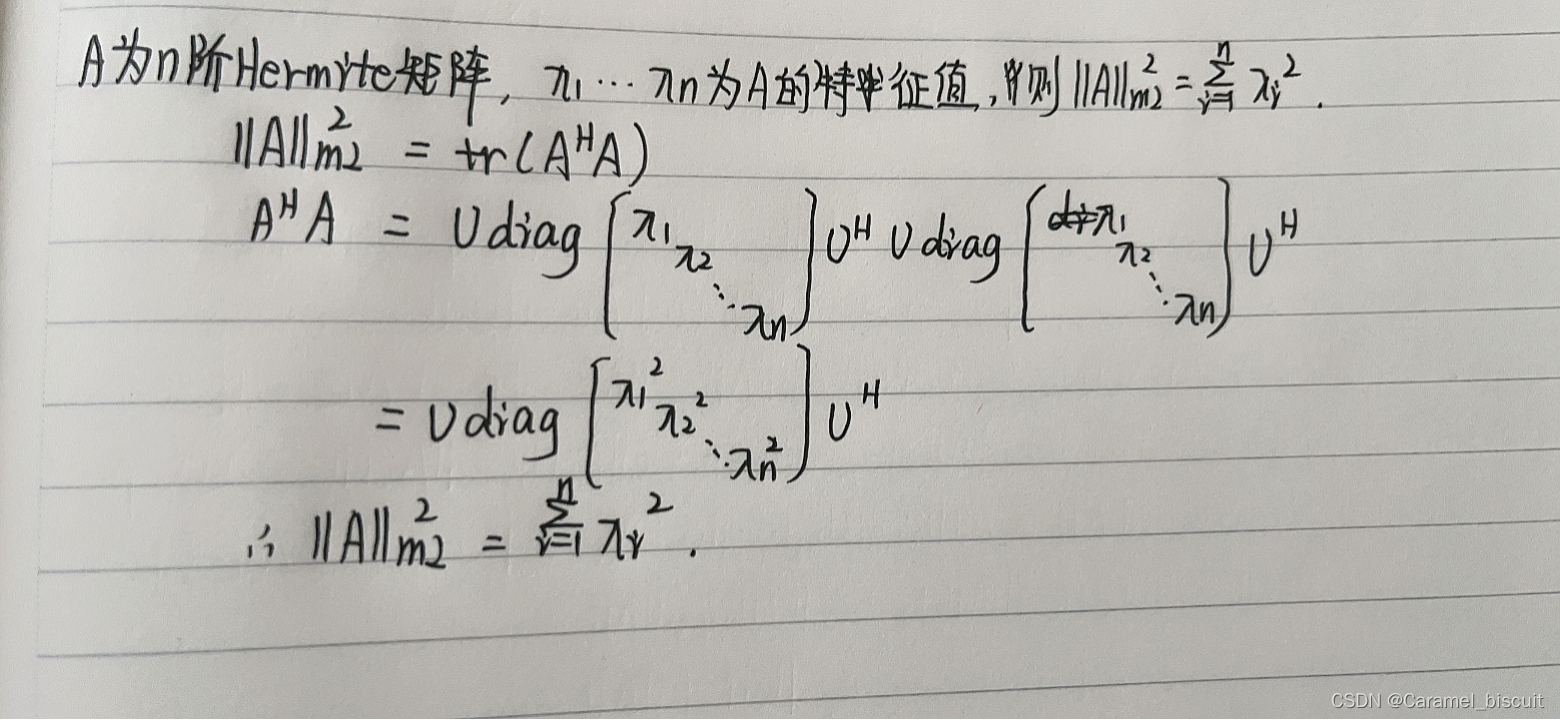 A为n阶Hermite矩阵, λ1 … λn为A的特征值, 则 ||A||m2^2 = Σ_{i=1}^{n} λi^2 .
||A||m2^2 = tr(A^H A)
A^H A = U diag [λ1 λ2 ⋱ λn] U^H U diag [λ1 λ2 ⋱ λn] U^H
= U diag [λ1^2 λ2^2 ⋱ λn^2] U^H
∴ ||A||m2^2 = Σ_{i=1}^{n} λi^2 .
CSDN @Caramel_biscuit